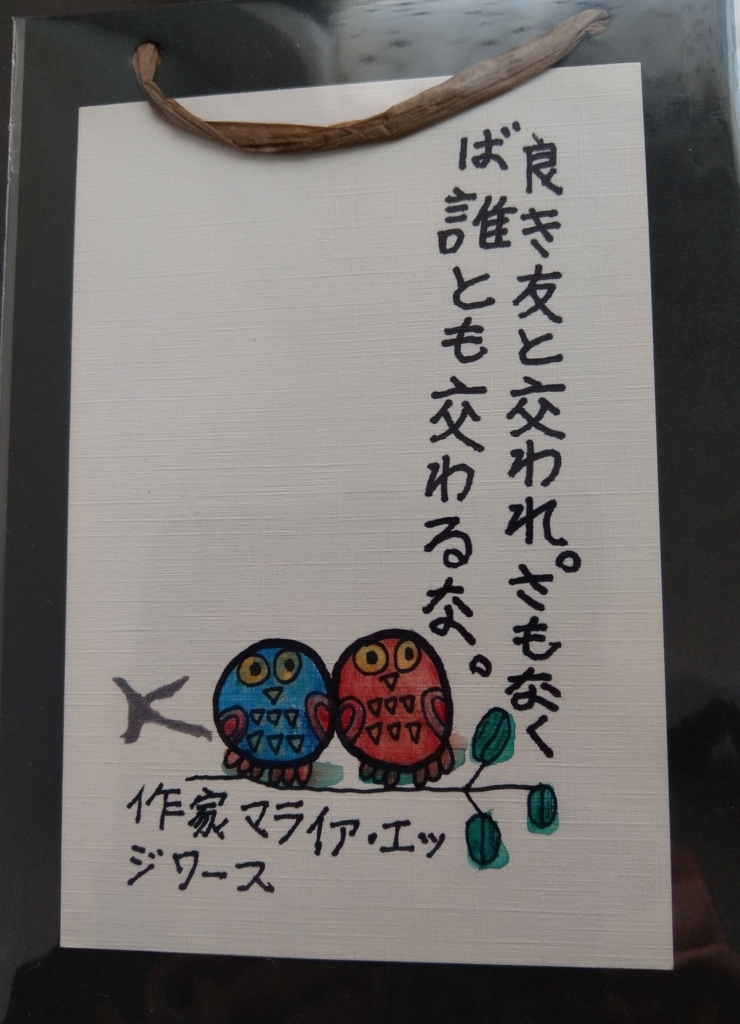 良き友と交われ。さもなく
ば誰とも交わるな。
作家マライア・エッ
ジワース